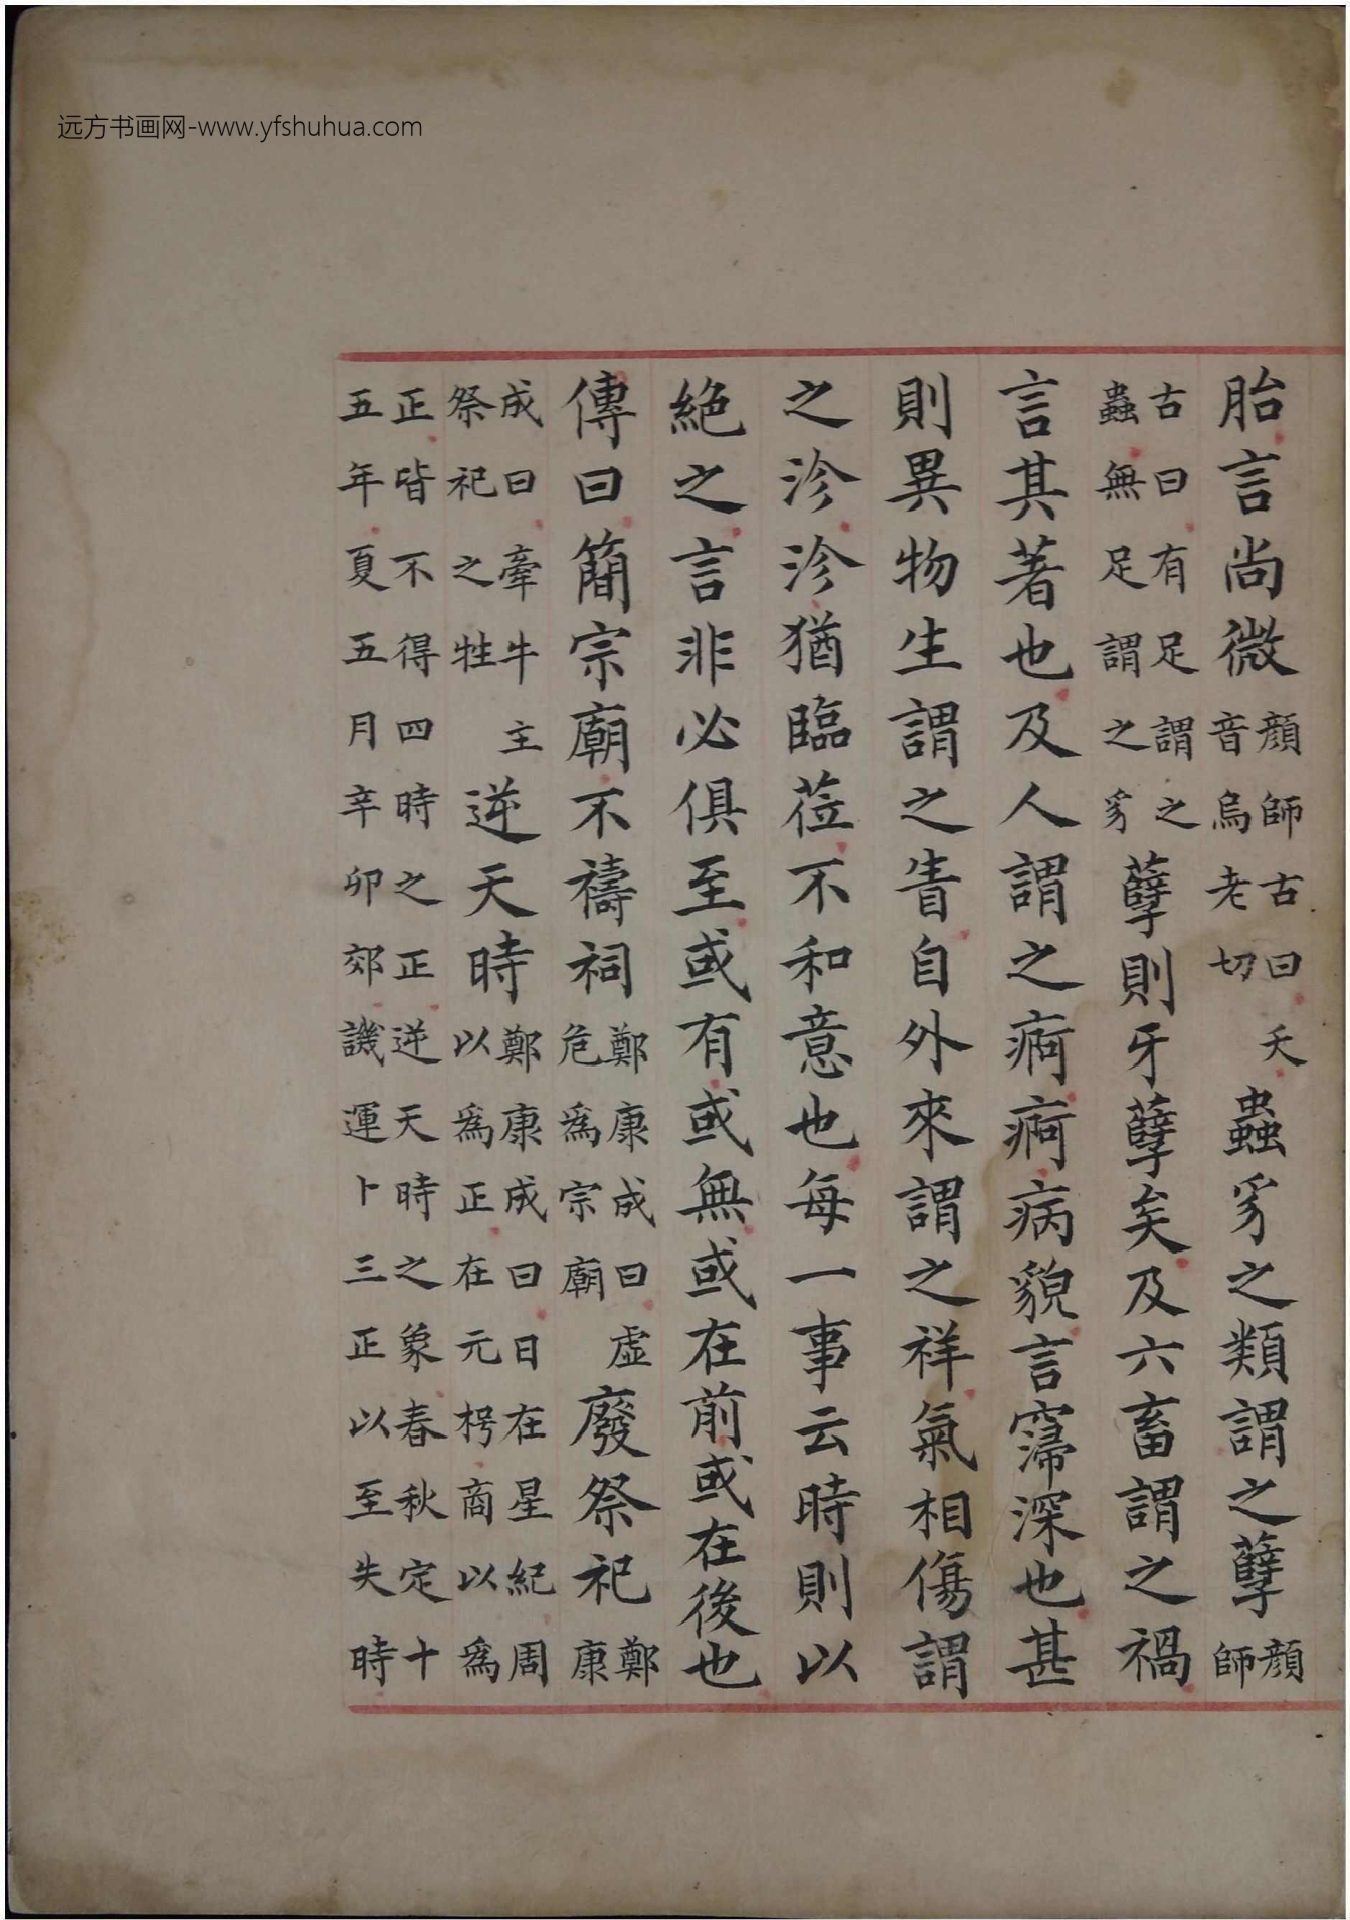 远方书画网-www.yfshuhua.com
胎言尚微顏師古曰夭音烏老切蟲豸之類謂之孽顏師
古曰有足謂之蟲無足謂之豸孽則牙孽矣及六畜謂之禍
言其著也及人謂之痾痾病貌言㴆深也甚
則異物生謂之眚自外來謂之祥氣相傷謂
之沴沴猶臨莅不和意也每一事云時則以
絕之言非必俱至或有或無或在前或在後也
傳曰簡宗廟不禱祠鄭康成曰虛危爲宗廟廢祭祀鄭康
成曰牽牛主祭祀之牲逆天時鄭康成曰日在星紀周以爲正在元枵商以爲
正皆不得四時之正逆天時之象春秋定十五年夏五月辛卯郊譏運卜三正以至失時